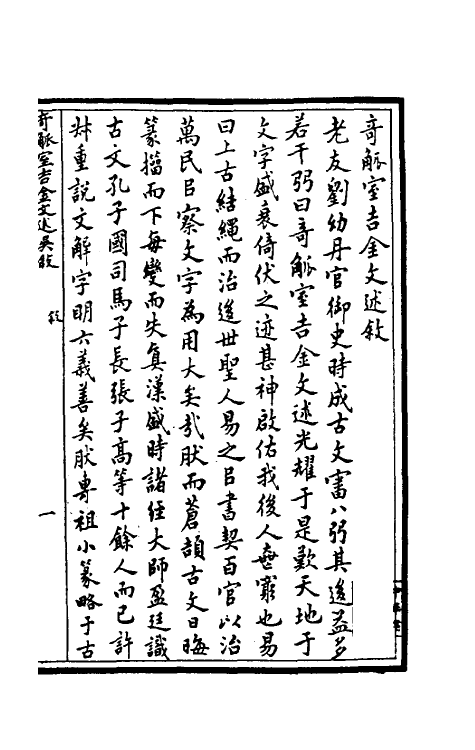 奇觚室吉金文述敘
老友劉幼丹官御史時成古文審八弜其後益多
若干弜曰奇觚室吉金文述光耀于是歎天地于
文字盛衰倚伏之迹甚神啟佑我後人無窮也易
曰上古結繩而治後世聖人易之㠯書契百官以治
萬民㠯察文字為用大矣哉肰而蒼頡古文日晦
篆籀而下每變而失真漢盛時諸經大師盈廷識
古文孔子國司馬子長張子高等十餘人而已許
尗重說文解字明六義善矣肰專祖小篆略于古
奇觚室吉金文述吳敘
敘
一